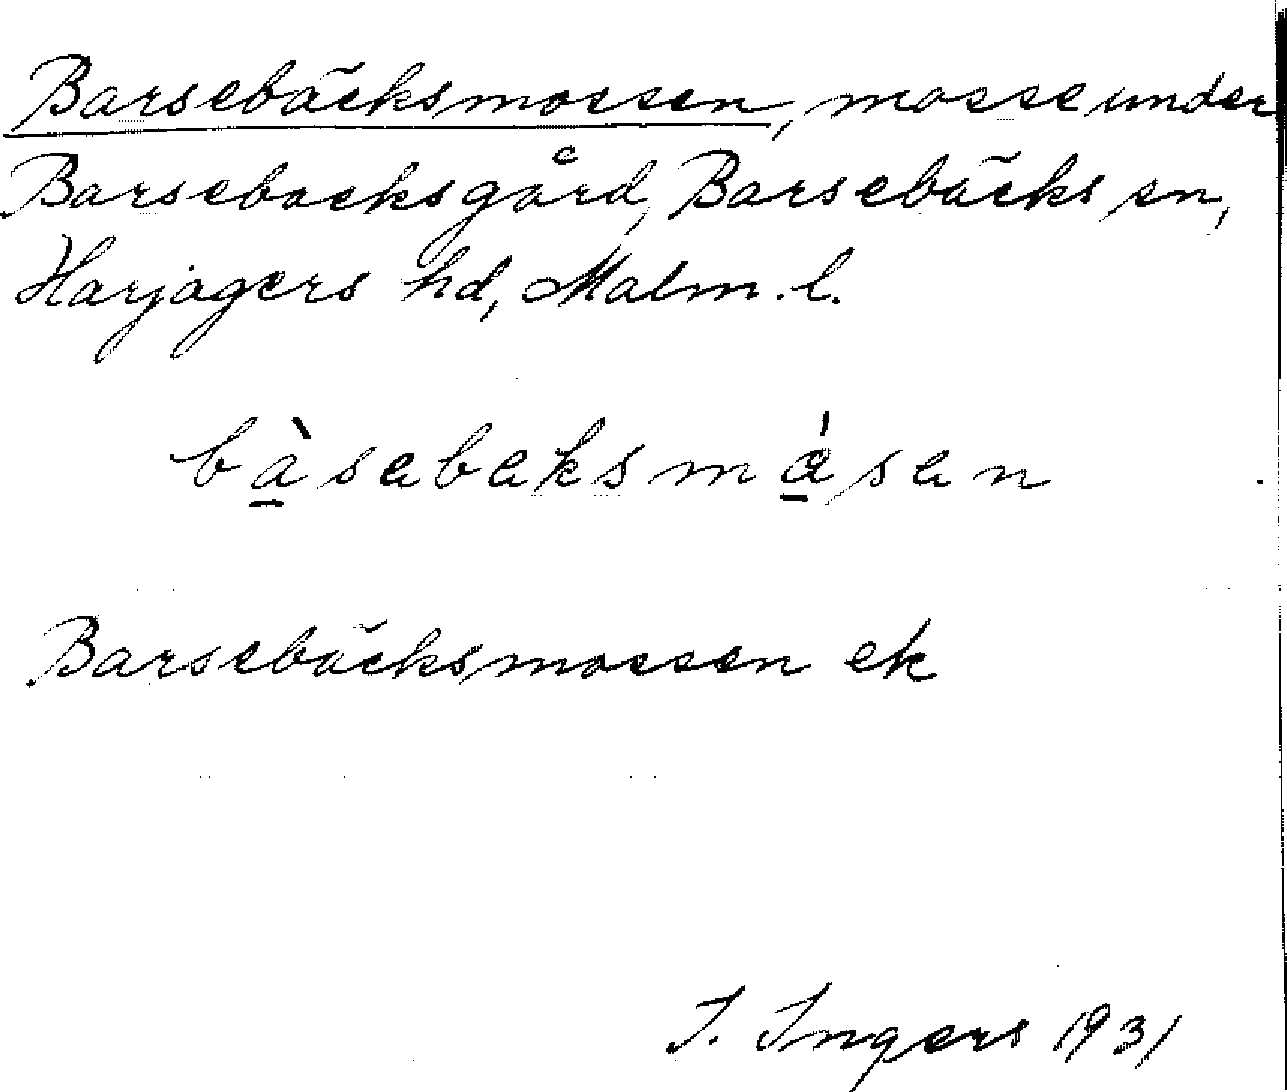 Barsebäcksmossen, mosse under
Barsebacksgård, Barsebäcks sn,
Harjagers hd, Malm. l.
bàsebeksmåsen
Barsebäcksmossen ek
I. Ingers 1931